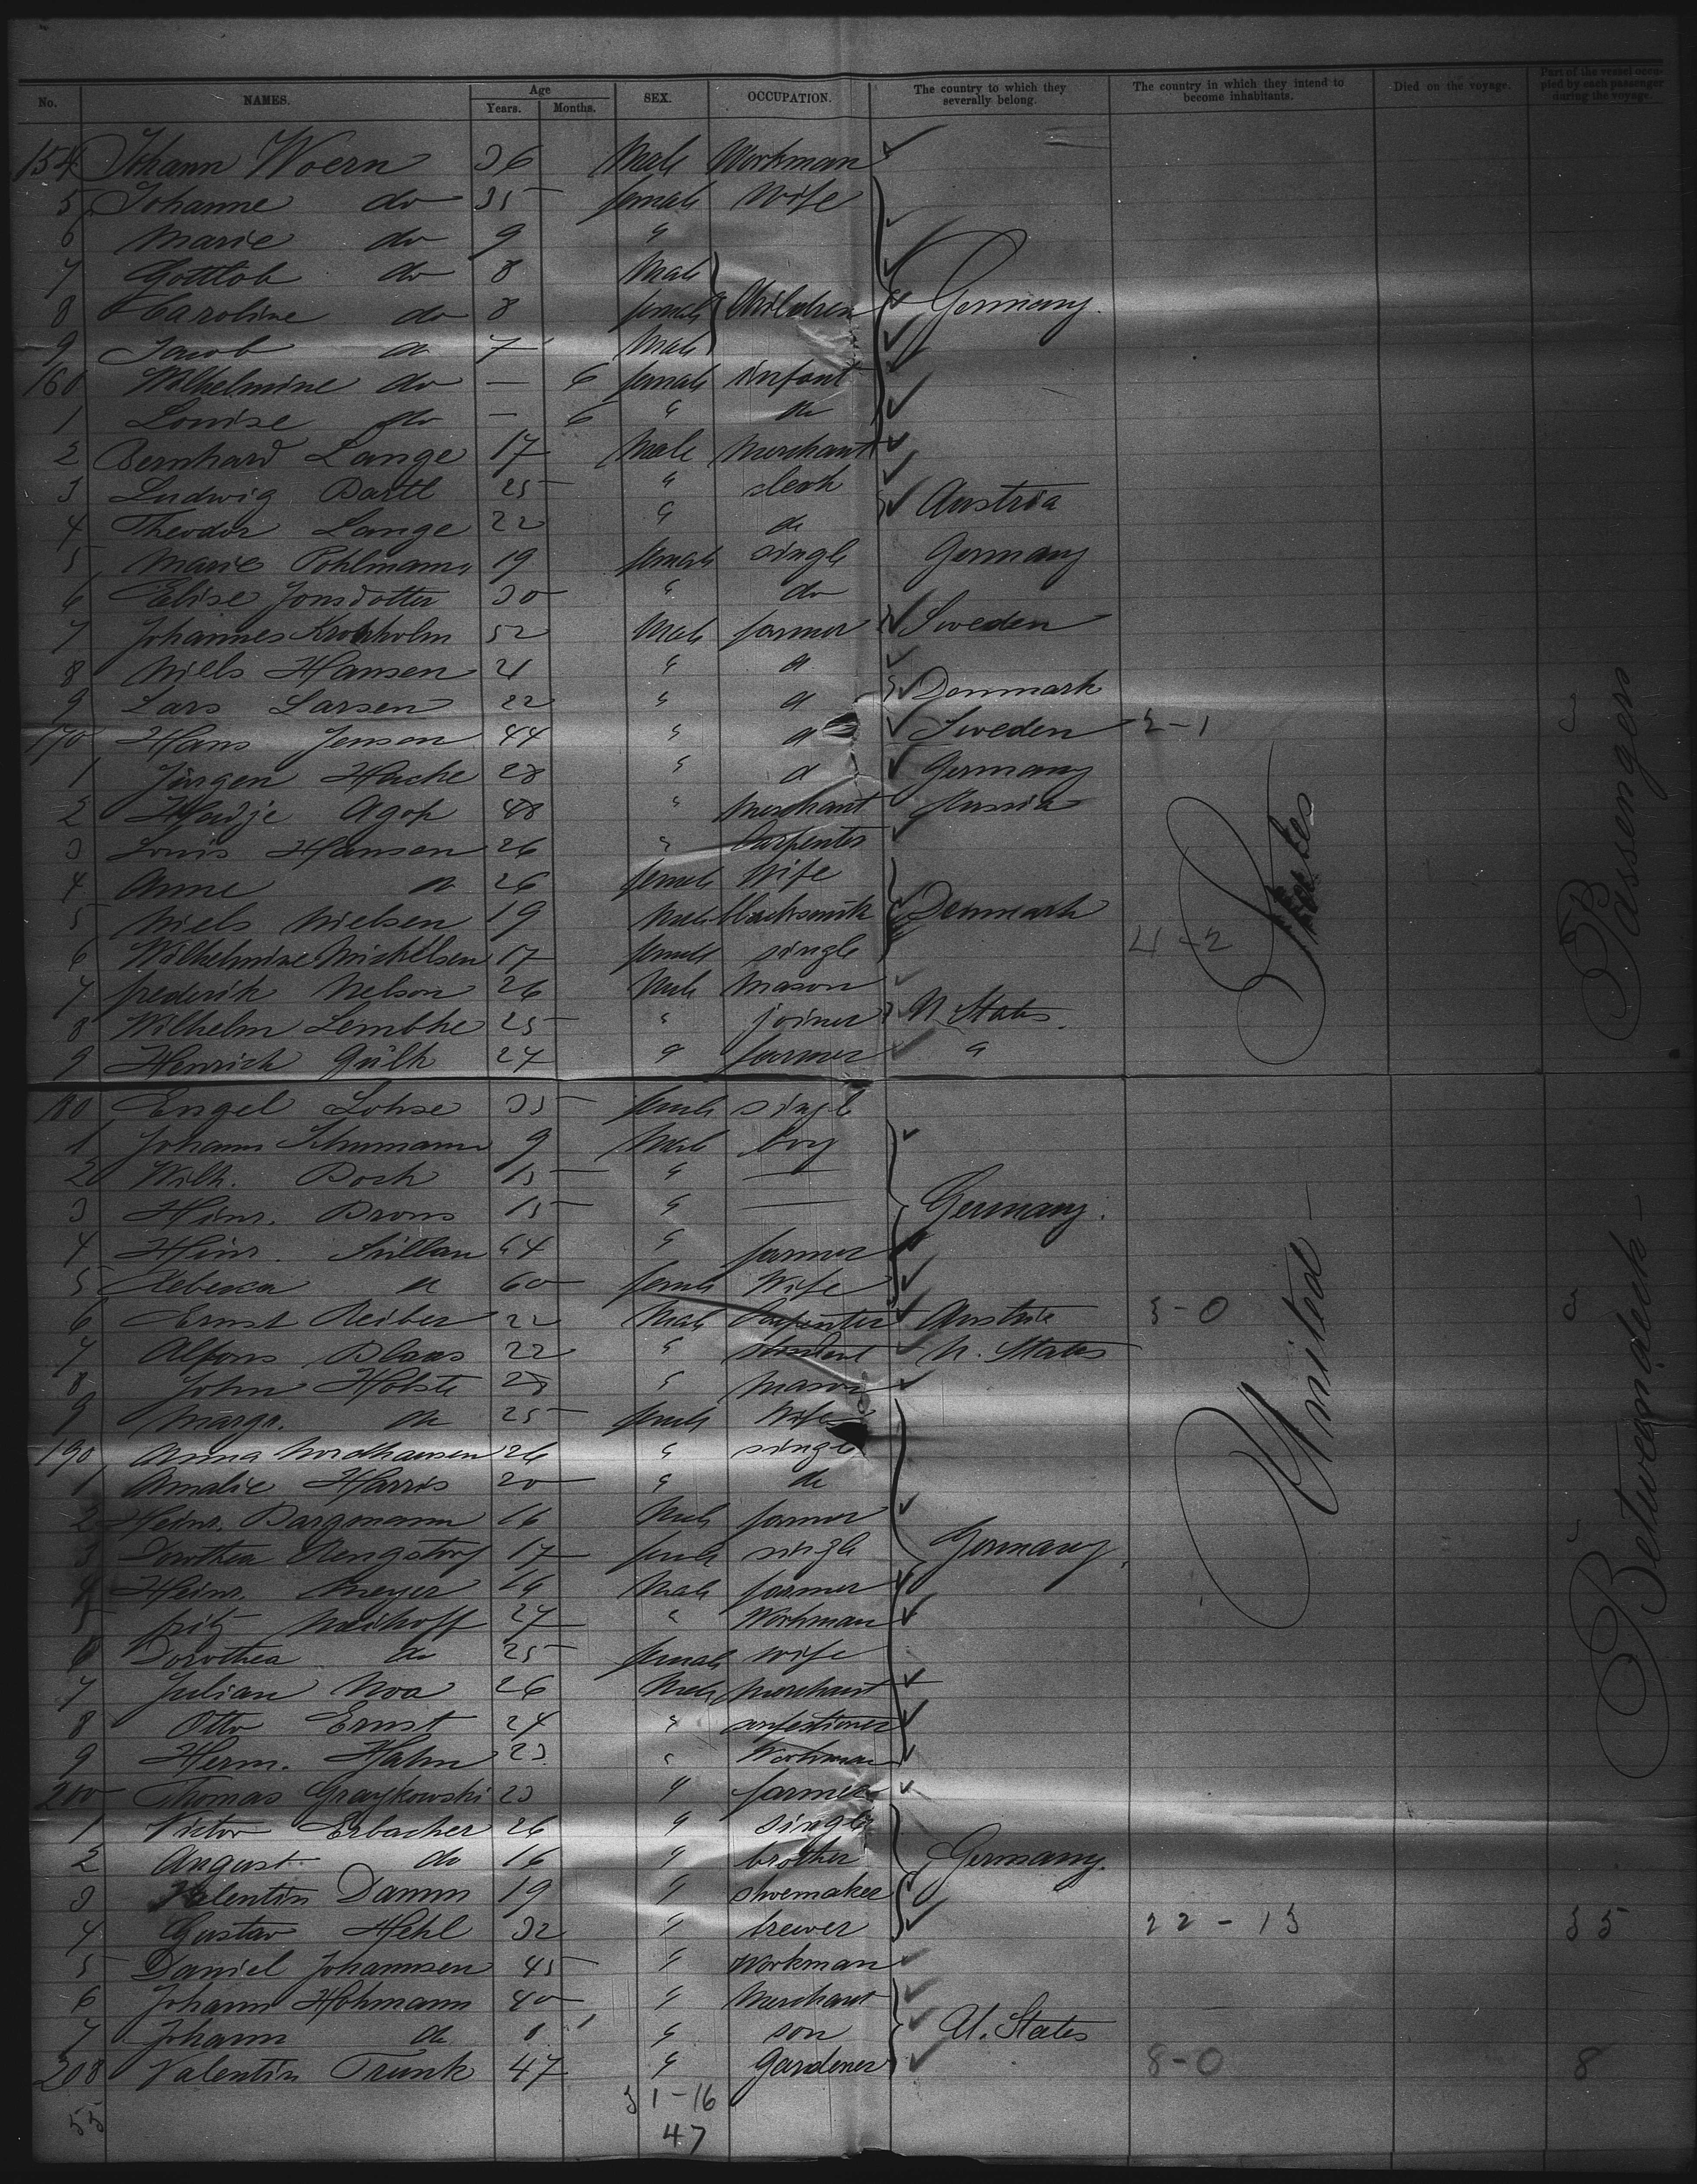 No. NAMES. Age Years. Months. SEX. OCCUPATION. The country to which they severally belong. The country in which they intend to become inhabitants. Died on the voyage. Part of the vessel occupied by each passenger during the voyage.
154 Johann Woern 36 Male Workman
5 Johanne do 35 female Wife
6 Marie do 9 "
7 Gottlob do 8 Male
8 Caroline do 8 female Children Germany.
9 Jacob do 7 Male
160 Wilhelmine do — 6 female infant
1 Louise do — 6 " do
2 Bernhard Lange 17 Male Merchant
3 Ludwig Bartl 25 " clerk Austria
4 Theodor Lange 22 " do
5 Marie Pohlmann 19 female single Germany
6 Elise Jonsdotter 30 " do
7 Johannes Kronholm 52 Male farmer Sweden
8 Niells Hansen 21 " d
9 Lars Larsen 22 " d Denmark
170 Hans Jensen 44 " d Sweden 2-1
1 Jürgen Hache 28 " d Germany
2 Hadje Agop 48 " Merchant Russia
3 Louis Hansen 26 " Carpenter
4 Anne do 26 female Wife
5 Niels Nielsen 19 Male blacksmith Denmark
6 Wilhelmine Mickelsen 17 female single 4-2
7 frederik Nelson 26 Male Mason
8 Wilhelm Lembke 25 " joiner U. States.
9 Henrich Gülk 27 " farmer "
180 Engel Lohse 35 female single
1 Johann Schumann 9 Male boy
2 Wilh. Bosh 15 " —
3 Hinr. Brons 15 " — Germany.
4 Hinr. 64 " farmer
5 Rebecca do 60 female Wife
6 Ernst Reiber 22 Male Carpenter Austria 3-0
7 Alfons Blaas 22 " student U. States
8 John Holste 28 " mason
9 Margr. do 25 female Wife
190 Anna Nordhausen 26 " single
1 Amalie Harris 20 " do
2 Heinr. Bargmann 16 Male farmer
3 Dorothea Rengstorf 17 female single Germany.
4 Heinr. Meyer 16 Male farmer
5 fritz Meihoff 27 " Workman
6 Dorothea do 25 female wife
7 Julian Noa 26 Male Merchant
8 Otto Ernst 24 " confectioner
9 Herm. Hahn 23 " Workman
200 Thomas Graykowski 23 " farmer
1 Victor Erbacher 26 " single
2 August do 16 " brother Germany.
3 Valentin Damm 19 " shoemaker
4 Gustav Hehl 32 " brewer 22-13 35
5 Daniel Johannsen 45 " Workman
6 Johann Hohmann 40 " Merchant
7 Johann do 8 " son U. States
208 Valentin Trunk 47 " Gardener 8-0 8
55 31-16
47
United States
Betweendeck Passengers